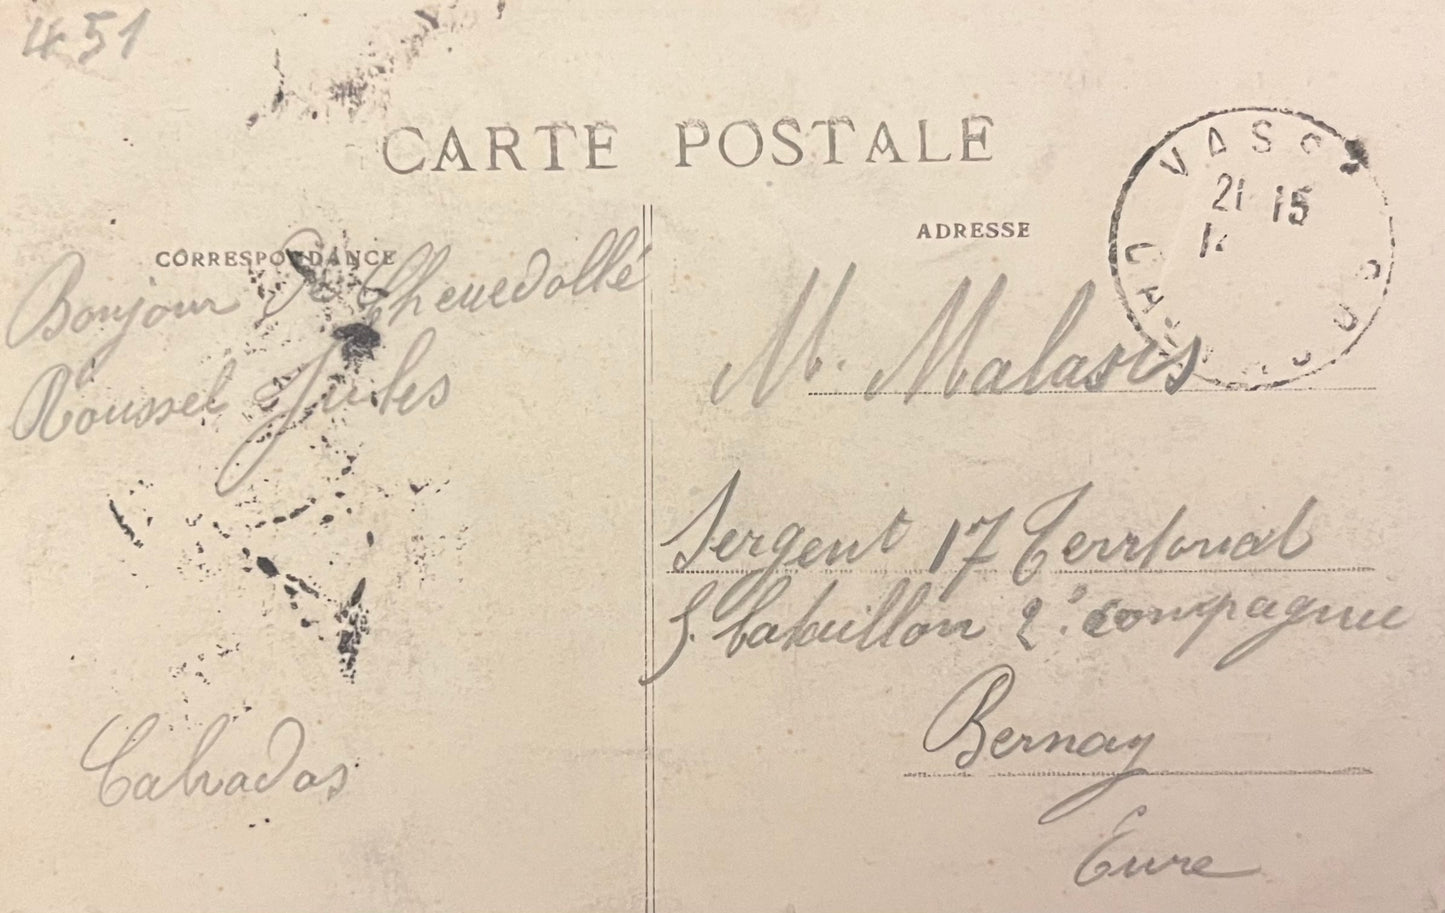 451
CARTE POSTALE
CORRESPONDANCE
ADRESSE
Bonjour de Chenedollé
Roussel Jules
Calvados
M. Malassis
Sergent 17 Territorial
bataillon 2e compagnie
Bernay
Eure
21 15